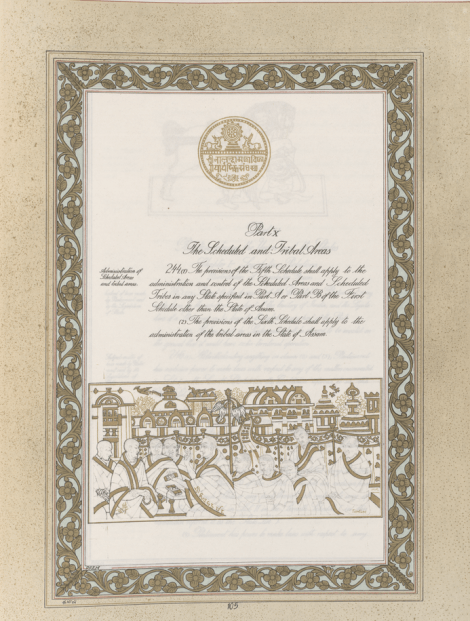 Part X
The Scheduled and Tribal Areas
Administration of
Scheduled Areas
and tribal areas.
244. (1) The provisions of the Fifth Schedule shall apply to the
administration and control of the Scheduled Areas and Scheduled
Tribes in any State specified in Part A or Part B of the First
Schedule other than the State of Assam.
(2) The provisions of the Sixth Schedule shall apply to the
administration of the tribal areas in the State of Assam.
105